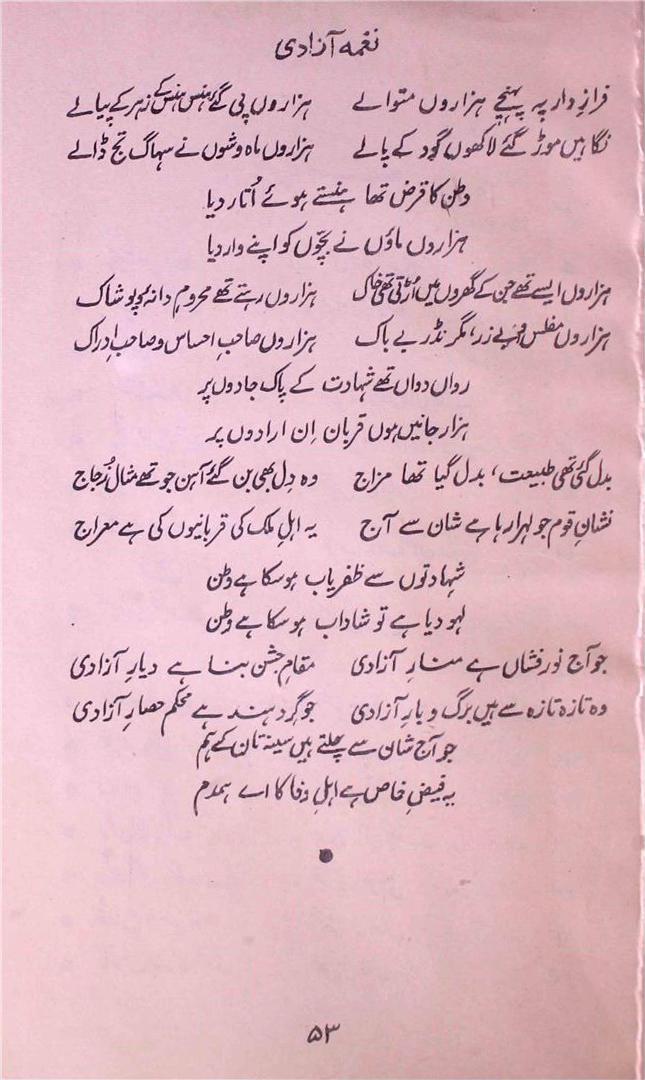 نغمہ آزادی
فرازِ دار پہ پہنچے ہزاروں متوالے ہزاروں پی گئے ہنس ہنس کے زہر کے پیالے
نگاہیں موڑ گئے لاکھوں گود کے پالے ہزاروں ماہ وشوں نے سہاگ تج ڈالے
وطن کا قرض تھا ہنستے ہوئے اُتار دیا
ہزاروں ماؤں نے بچّوں کو اپنے وار دیا
ہزاروں ایسے تھے جن کے گھروں میں اُڑتی تھی خاک ہزاروں رہتے تھے محرومِ دانہ و پوشاک
ہزاروں مفلس و بے زر، مگر نڈر بے باک ہزاروں صاحبِ احساس و صاحبِ ادراک
رواں دواں تھے شہادت کے پاک جادوں پر
ہزار جانیں ہوں قربان اِن ارادوں پر
بدل گئی تھی طبیعت، بدل گیا تھا مزاج وہ دِل بھی بن گئے آہن جو تھے مثالِ زُجاج
نشانِ قوم جو لہرا رہا ہے شان سے آج یہ اہلِ ملک کی قربانیوں کی ہے معراج
شہادتوں سے ظفریاب ہو سکا ہے وطن
لہو دیا ہے تو شاداب ہو سکا ہے وطن
جو آج نور فشاں ہے منارِ آزادی مقامِ جشن بنا ہے دیارِ آزادی
وہ تازہ تازہ سے ہیں برگ و بارِ آزادی جو گردِ ہند ہے محکم حصارِ آزادی
جو آج شان سے چلتے ہیں سینہ تان کے ہم
یہ فیضِ خاص ہے اہلِ وفا کا اے ہمدم
۵۳